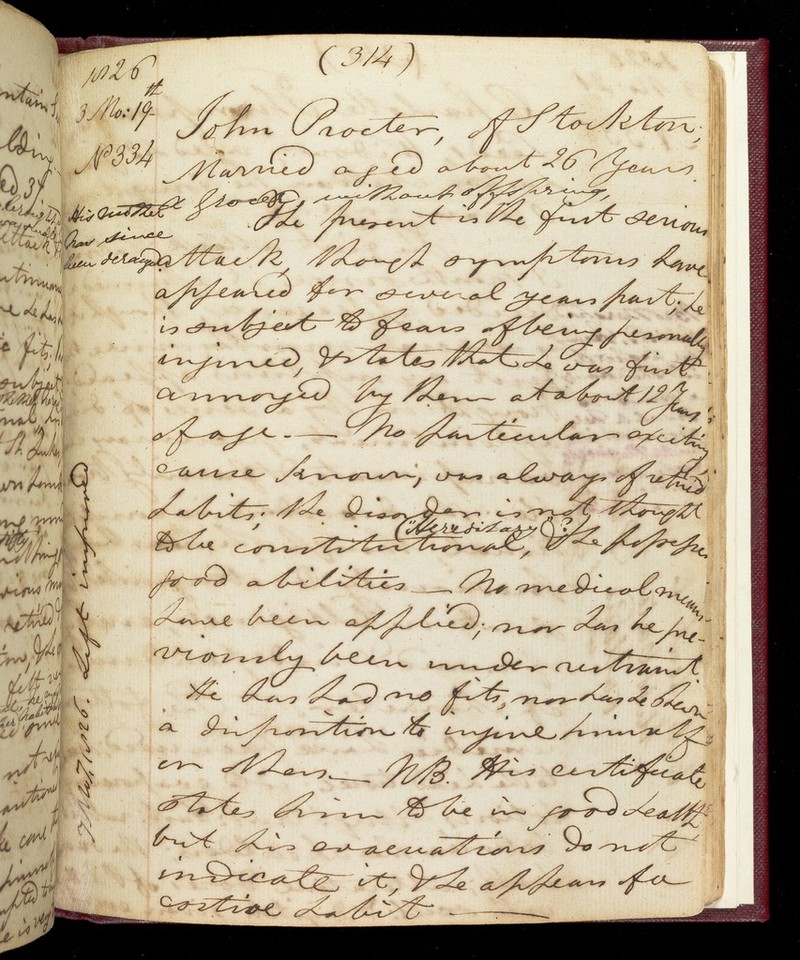 (314)
1826
3 Mo: 19th
No 334
John Procter, of Stockton;
Married aged about 26 Years.
a Grocer, without offspring
His mother
has since
been deranged
The present is the first serious
attack, though symptoms have
appeared for several years past; he
is subject to fears of being personally
injured, & states that he was first
annoyed by them at about 12 Years
of age. — No particular exciting
cause known; was always of retired
habits; the disorder is not thought
("Hereditary"?)
to be constitutional, & he possesses
good abilities — No medical means
have been applied; nor has he pre-
viously been under restraint
He has had no fits, nor has he shewn
a disposition to injure himself
or others — NB. His certificate
states him to be in good health
but his evacuations do not
indicate it, & he appears of a
costive habit —
1826. Left improved